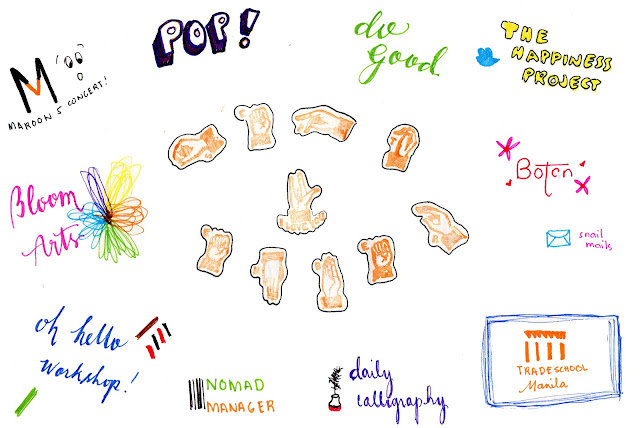 POP!
do
Good
THE
HAPPINESS
PROJECT
M
MAROON 5 CONCERT!
Boton
snail
mails
Bloom
Arts
oh hello
workshop!
NOMAD
MANAGER
daily
calligraphy
TRADESCHOOL
Manila